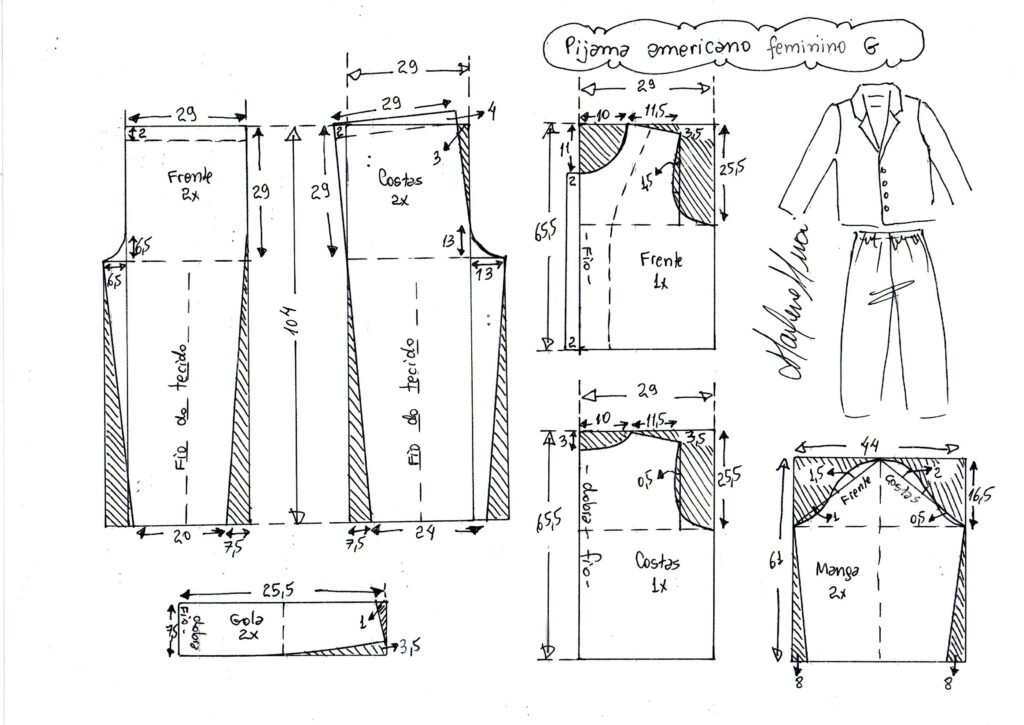 Pijama americano feminino G
29
2
Frente
2x
29
6,5
6,5
Fio do tecido
20
7,5
104
29
29
4
2
3
Costas
2x
29
13
13
Fio do tecido
7,5
24
25,5
7,5
Fio
dobra
Gola
2x
1
3,5
29
10
11,5
3,5
11
2
1,5
25,5
65,5
- Fio -
Frente
1x
2
29
10
11,5
3,5
3
0,5
25,5
65,5
- dobra + fio -
Costas
1x
44
1,5
2
Frente
Costas
16,5
1
0,5
61
Manga
2x
8
8